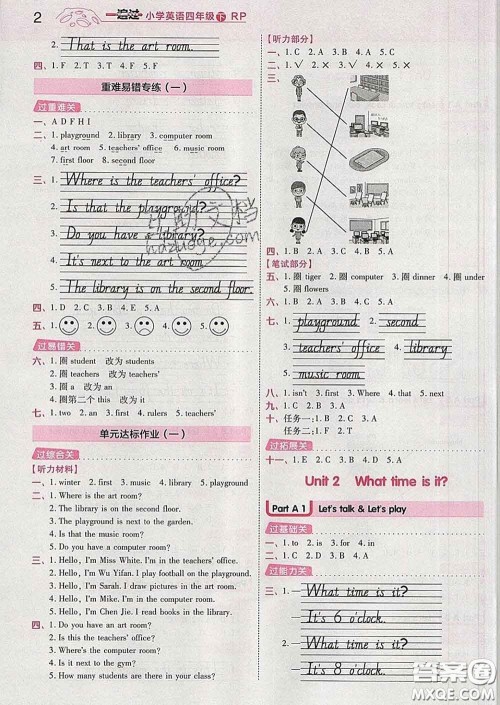 2 一遍过 小学英语四年级 下 RP
2. That is the art room.
四、1. F 2. T 3. T 4. F 5. F
重难易错专练（一）
过重难关
一、A D F H I
二、1. playground 2. library 3. computer room
4. art room 5. teachers' office 6. music room
7. first floor 8. second floor
三、1. Where is the teachers' office?
2. Is that the playground?
3. Do you have a library?
4. It's next to the art room.
5. The library is on the second floor.
四、1. D 2. C 3. E 4. B 5. A
五、1. 2. 3. 4. 5.
过易错关
六、1. 圈 student 改为 students
2. 圈 teachers 改为 teachers'
3. 圈 a 改为 an
4. 圈第二个 this 改为 it
七、1. two 2. an 3. first 4. students
单元达标作业（一）
过综合关
【听力材料】
一、1. winter 2. first 3. music 4. library 5. garden
二、1. Where is the art room?
2. The library is on the second floor.
3. The playground is next to the garden.
4. Is that the music room?
5. Do you have a computer room?
三、1. Hello, I'm Miss White. I'm in the teachers' office.
2. Hello, I'm Wu Yifan. I play football on the playground.
3. Hello, I'm Sarah. I draw pictures in the art room.
4. Hello, I'm Mike. I'm in the computer room.
5. Hello, I'm Chen Jie. I read stories in the library.
四、1. Where is the art room?
2. Is this the teachers' office?
3. Do you have a library?
4. Is it next to the gym?
5. How many students are there in your class?
【听力部分】
一、1. C 2. A 3. C 4. A 5. B
二、1. √ 2. × 3. × 4. √ 5. √
三、
四、1. B 2. C 3. B 4. A 5. A
【笔试部分】
五、1. 圈 tiger 2. 圈 computer 3. 圈 dinner 4. 圈 under
5. 圈 flowers
六、1. B 2. C 3. A 4. B 5. A
七、1. playground 2. second
3. teachers' office 4. library
5. music room
八、1. isn't 2. first 3. Where 4. that 5. next
九、1. C 2. B 3. A
十、任务一：1. C 2. B 3. A
任务二：1. T 2. F 3. F
过拓展关
十一、1. C 2. A 3. C 4. B
Unit 2 What time is it?
Part A 1 Let's talk & Let's play
过基础关
一、1. to 2. is 3. for 4. o'clock
二、1. C 2. A 3. B 4. D
过能力关
三、1. —What time is it?
—It's 6 o'clock.
2. —What time is it?
—It's 8 o'clock.
hadzuoge.com
答案圈
MXQE.COM